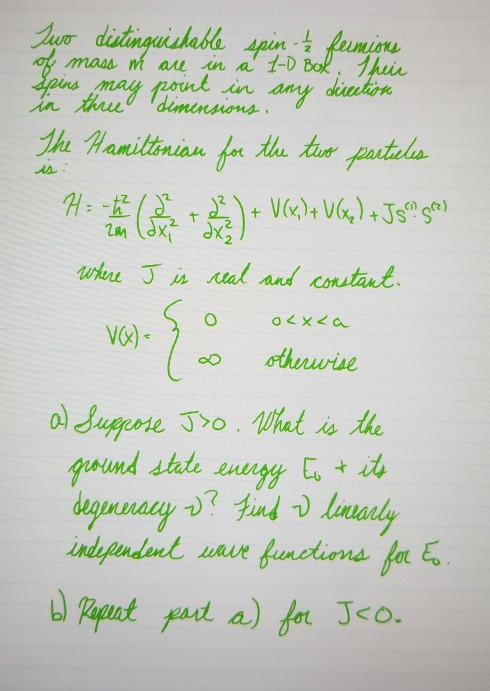 Two distinguishable spin-½ fermions
of mass m are in a 1-D Box. Their
spins may point in any direction
in three dimensions.
The Hamiltonian for the two particles
is:
H = -ħ²/2m (∂²/∂x₁² + ∂²/∂x₂²) + V(x₁) + V(x₂) + J S⁽¹⁾·S⁽²⁾
where J is real and constant.
V(x) = { 0 0<x<a
∞ otherwise
a) Suppose J>0. What is the
ground state energy E₀ + its
degeneracy ν? Find ν linearly
independent wave functions for E₀.
b) Repeat part a) for J<0.